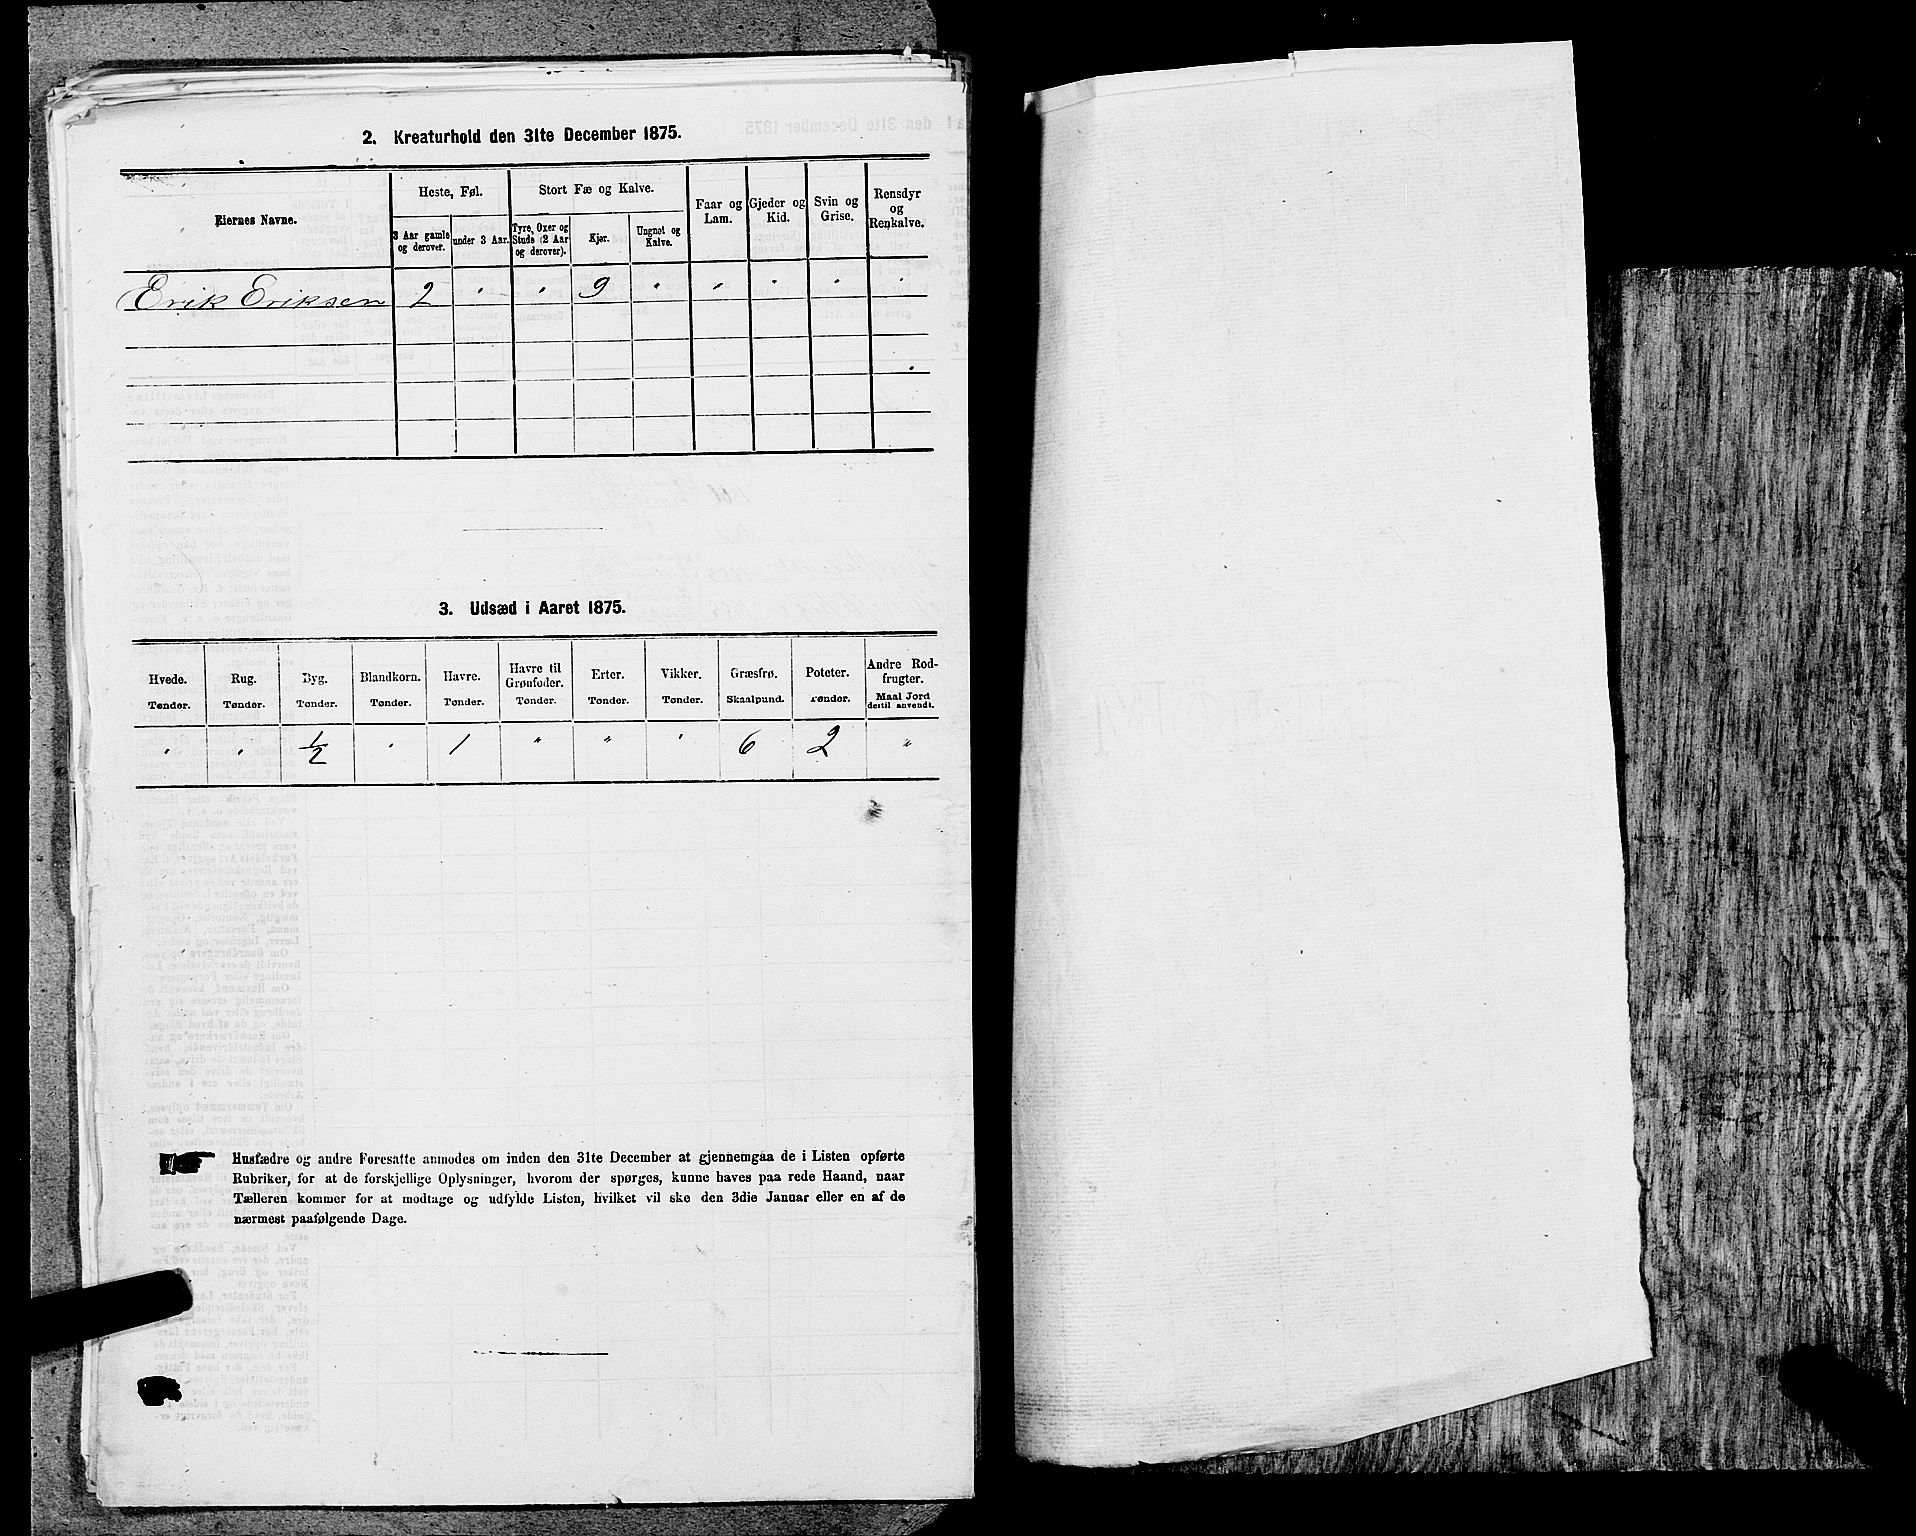 2. Kreaturhold den 31te December 1875.
Eiernes Navne.
Heste, Føl.
Stort Fæ og Kalve.
Faar og
Lam.
Gjeder og
Kid.
Svin og
Grise.
Rensdyr
og
Renkalve.
3 Aar gamle
og derover.
under 3 Aar.
Tyre, Oxer og
Stude (2 Aar
og derover).
Kjør.
Ungnøt og
Kalve.
Erik Eriksen 2 " " 9 " " " " "
3. Udsæd i Aaret 1875.
Hvede.
Tønder.
Rug.
Tønder.
Byg.
Tønder.
Blandkorn.
Tønder.
Havre.
Tønder.
Havre til
Grønfoder.
Tønder.
Erter.
Tønder.
Vikker.
Tønder.
Græsfrø.
Skaalpund.
Poteter.
Tønder.
Andre Rod-
frugter.
Maal Jord
dertil anvendt.
" " 1/2 " 1 " " " 6 2 "
Husfædre og andre Foresatte anmodes om inden den 31te December at gjennemgaa de i Listen opførte
Rubriker, for at de forskjellige Oplysninger, hvorom der spørges, kunne haves paa rede Haand, naar
Tælleren kommer for at modtage og udfylde Listen, hvilket vil ske den 3die Januar eller en af de
nærmest paafølgende Dage.